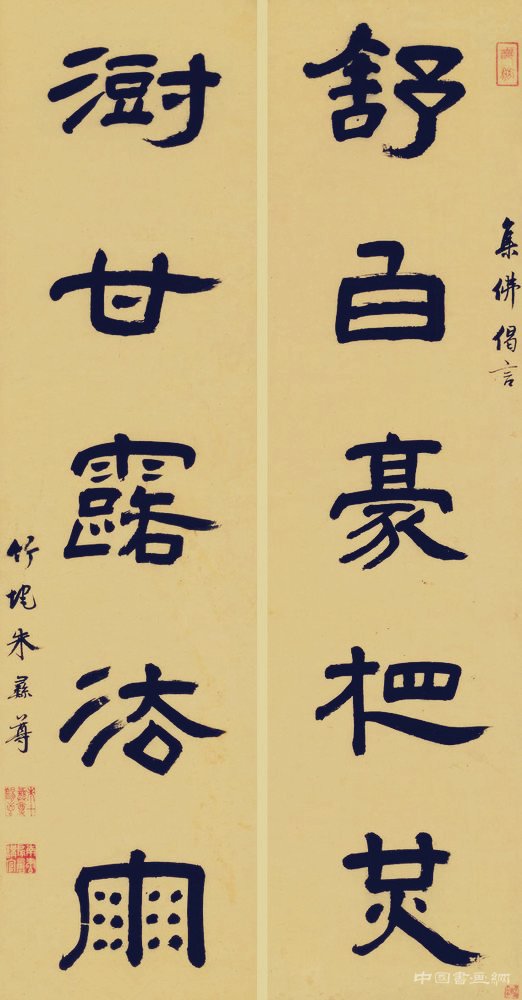 集佛偈言
舒白豪相炗
澍甘露法雨
竹垞朱彝尊
中国書画網